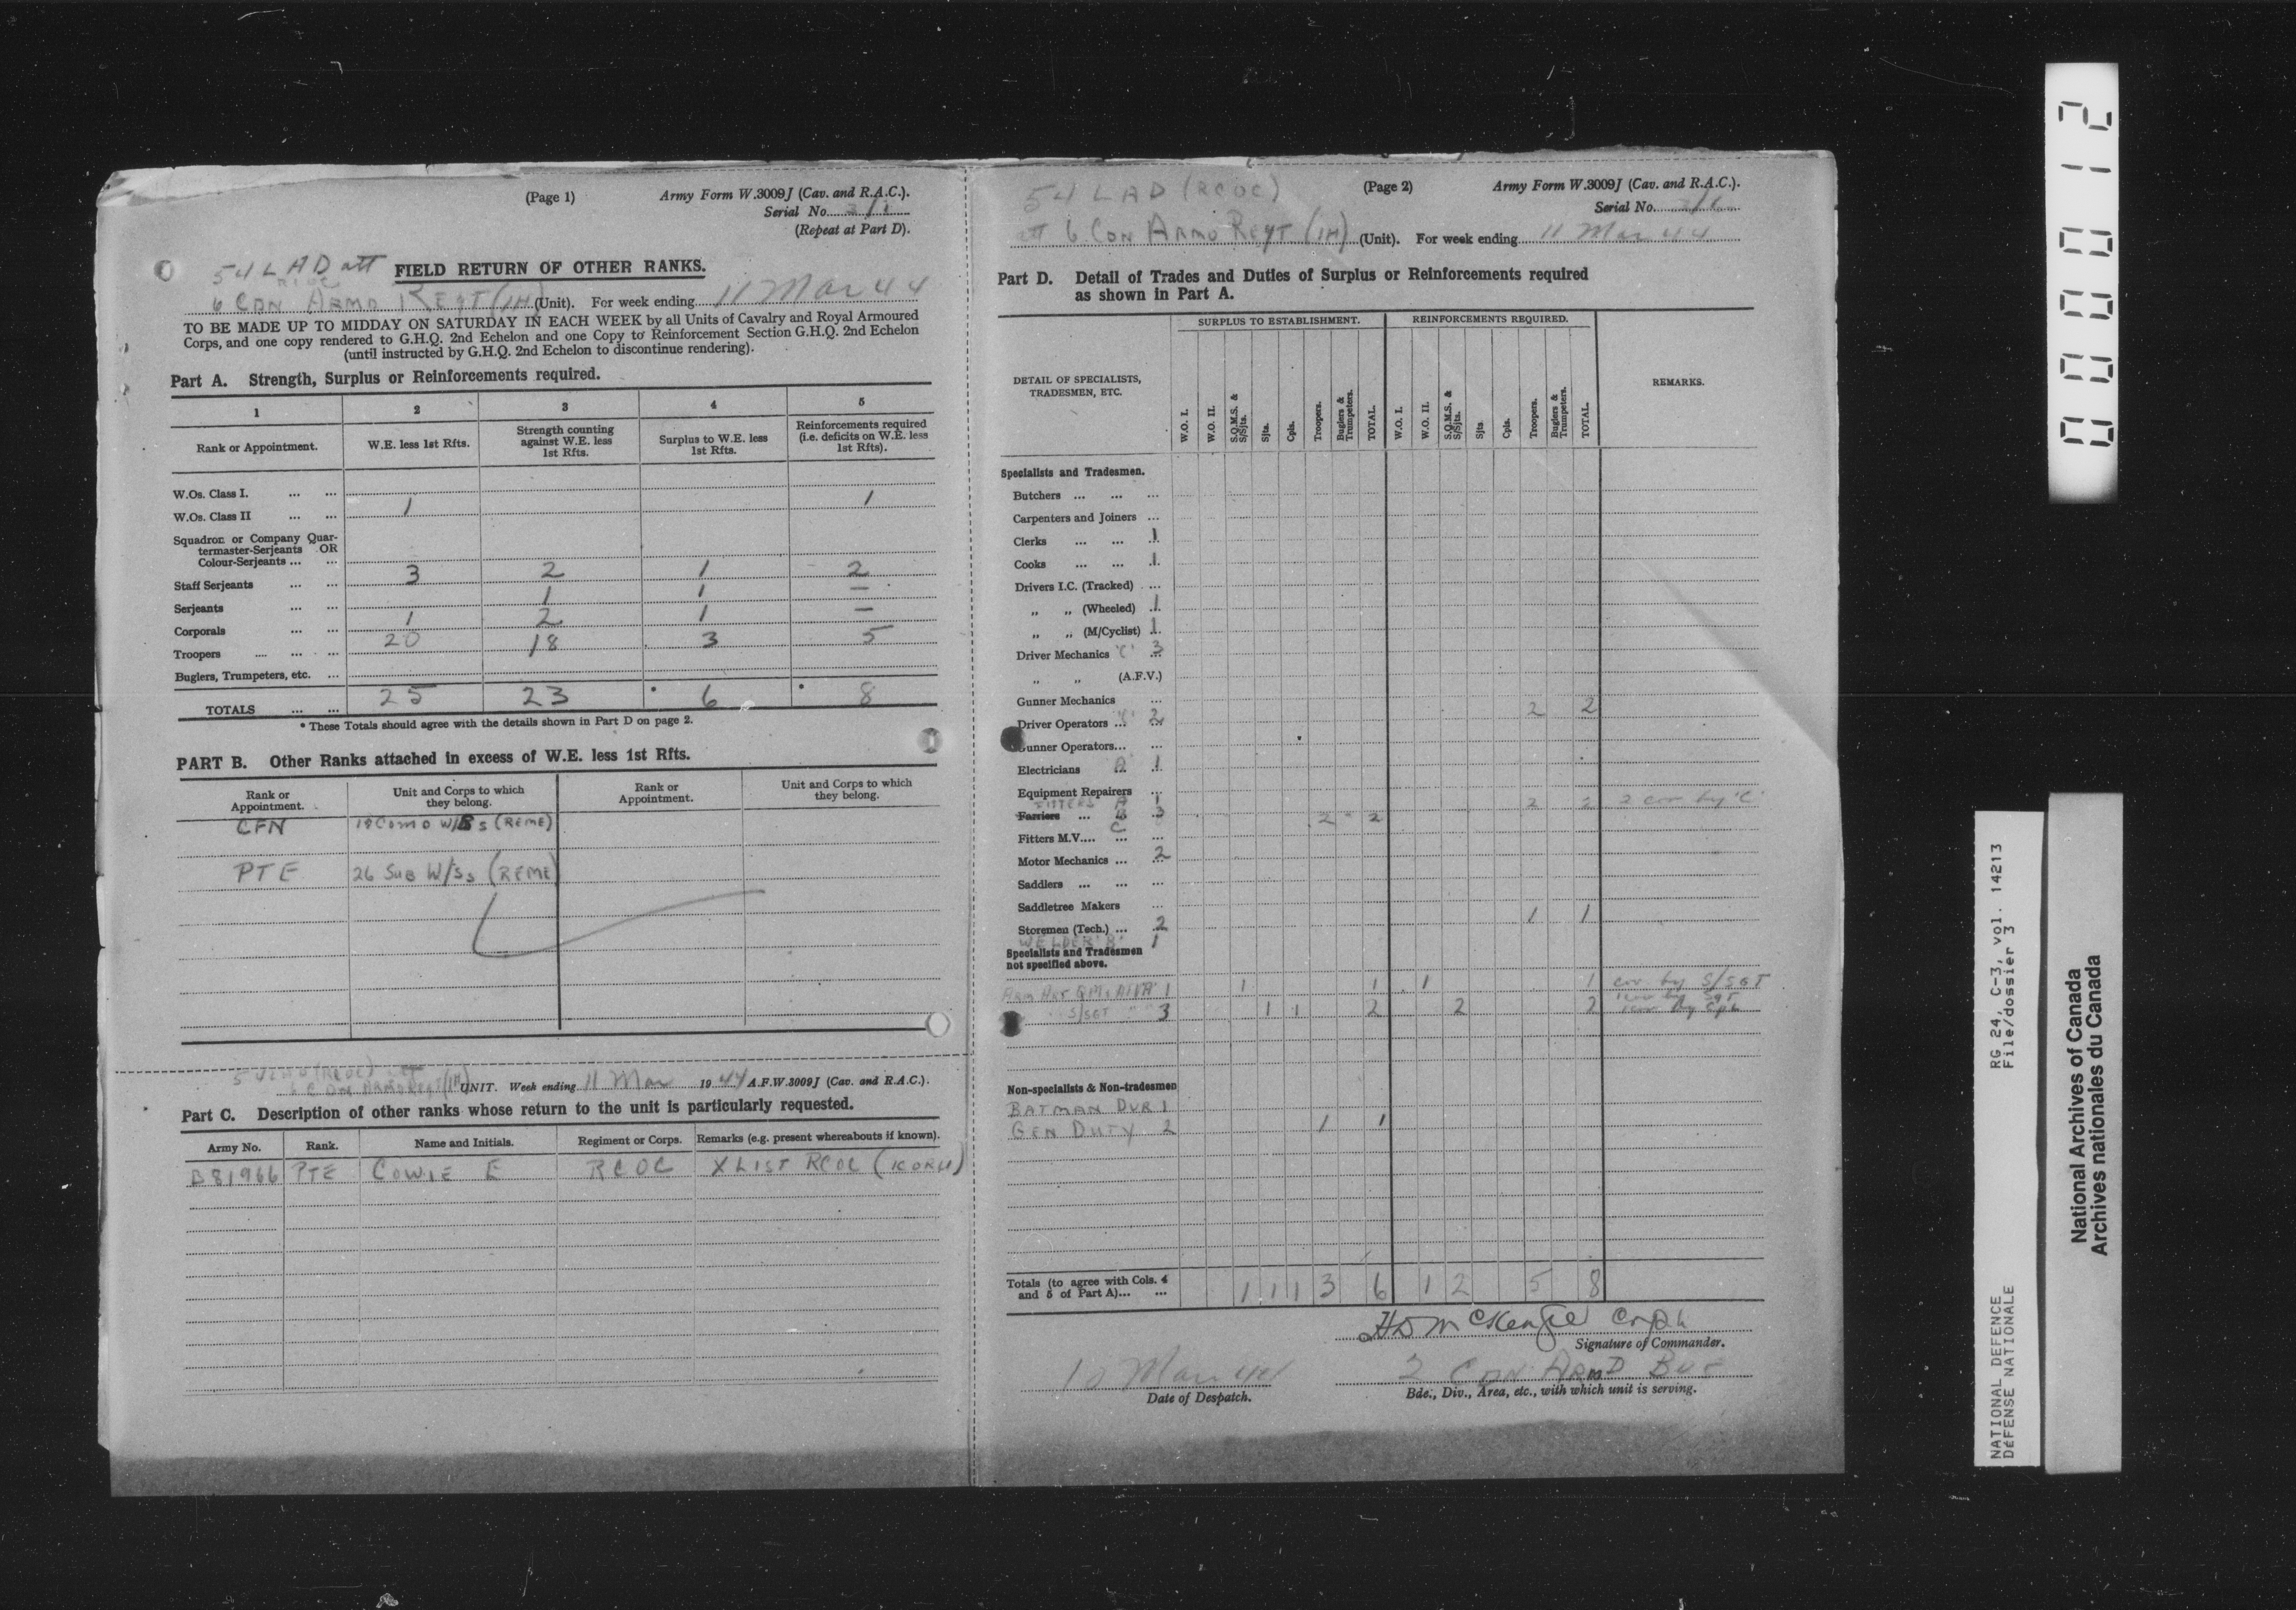 (Page 1) Army Form W.3009J (Cav. and R.A.C.).
Serial No.
(Repeat at Part D).
54 LAD att FIELD RETURN OF OTHER RANKS.
RCOC
6 CDN ARMD REGT (1H) (Unit). For week ending 11 Mar 44
TO BE MADE UP TO MIDDAY ON SATURDAY IN EACH WEEK by all Units of Cavalry and Royal Armoured
Corps, and one copy rendered to G.H.Q. 2nd Echelon and one Copy to Reinforcement Section G.H.Q. 2nd Echelon
(until instructed by G.H.Q. 2nd Echelon to discontinue rendering).
Part A. Strength, Surplus or Reinforcements required.
1 2 3 4 5
Rank or Appointment. W.E. less 1st Rfts. Strength counting against W.E. less 1st Rfts. Surplus to W.E. less 1st Rfts. Reinforcements required (i.e. deficits on W.E. less 1st Rfts).
W.Os. Class I. ... ...
W.Os. Class II ... ... 1 1
Squadron or Company Quar-
termaster-Serjeants OR
Colour-Serjeants ... ...
Staff Serjeants ... ... 3 2 1 2
Serjeants ... ... 1 1 —
Corporals ... ... 1 2 1 —
Troopers .... ... ... 20 18 3 5
Buglers, Trumpeters, etc. ...
TOTALS ... ... 25 23 * 6 * 8
* These Totals should agree with the details shown in Part D on page 2.
PART B. Other Ranks attached in excess of W.E. less 1st Rfts.
Rank or Appointment. Unit and Corps to which they belong. Rank or Appointment. Unit and Corps to which they belong.
CFN (REME)
PTE 26 SUB W/Ss (REME)
UNIT. Week ending 11 Mar 1944 A.F.W.3009J (Cav. and R.A.C.).
Part C. Description of other ranks whose return to the unit is particularly requested.
Army No. Rank. Name and Initials. Regiment or Corps. Remarks (e.g. present whereabouts if known).
B81966 PTE COWIE E RCOC X LIST RCOC
54 LAD (RCOC) (Page 2) Army Form W.3009J (Cav. and R.A.C.).
Serial No.
att 6 CDN ARMD REGT (1H) (Unit). For week ending 11 Mar 44
Part D. Detail of Trades and Duties of Surplus or Reinforcements required
as shown in Part A.
SURPLUS TO ESTABLISHMENT. REINFORCEMENTS REQUIRED.
DETAIL OF SPECIALISTS, TRADESMEN, ETC. W.O. I. W.O. II. S.Q.M.S. & S/Sjts. Sjts. Cpls. Troopers. Buglers & Trumpeters. TOTAL. W.O. I. W.O. II. S.Q.M.S. & S/Sjts. Sjts. Cpls. Troopers. Buglers & Trumpeters. TOTAL. REMARKS.
Specialists and Tradesmen.
Butchers ... ... ...
Carpenters and Joiners ...
Clerks ... ... 1
Cooks ... ... 1
Drivers I.C. (Tracked) ...
„ „ (Wheeled) 1
„ „ (M/Cyclist) 1
Driver Mechanics 'C' 3
„ „ (A.F.V.)
Gunner Mechanics ...
Driver Operators ... 2 2 2
Gunner Operators... ...
Electricians 'A' 1
Equipment Repairers ...
FITTERS A 1 2 2 2 cov by 'C'
Farriers ... B 3 2 2
Fitters M.V.... C ...
Motor Mechanics ... 2
Saddlers ... ... ...
Saddletree Makers ...
Storemen (Tech.) ... 2 1 1
WELDER 'B' 1
Specialists and Tradesmen
not specified above.
1 1 1 1 1 cov by S/SGT
S/SGT 3 1 1 2 2 2 1 cov by SGT
1 cov by Cpl
Non-specialists & Non-tradesmen
BATMAN DVR 1
GEN DUTY 2 1 1
Totals (to agree with Cols. 4
and 5 of Part A)... ... 1 1 1 3 6 1 2 5 8
HD McKenzie
Signature of Commander.
10 Mar 44 2 CDN ARMD BDE
Date of Despatch. Bde., Div., Area, etc., with which unit is serving.
000012
RG 24, C-3, vol. 14213
File/dossier 3
NATIONAL DEFENCE
DÉFENSE NATIONALE
National Archives of Canada
Archives nationales du Canada